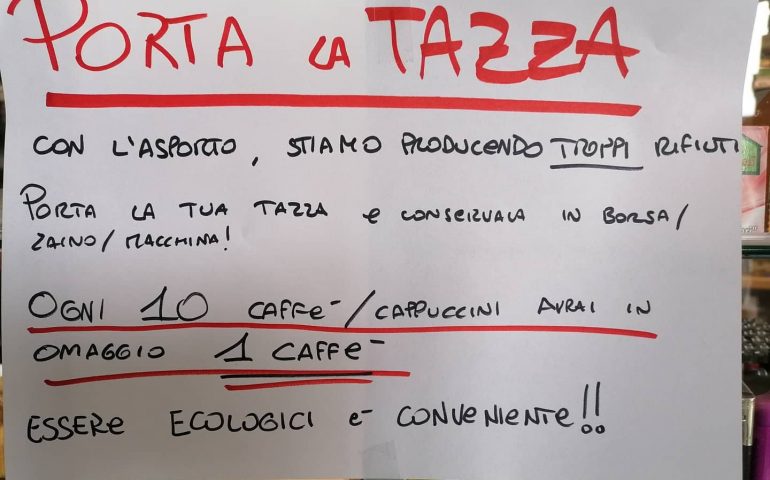 PORTA LA TAZZA
CON L'ASPORTO, STIAMO PRODUCENDO TROPPI RIFIUTI
PORTA LA TUA TAZZA E CONSERVALA IN BORSA/
ZAINO/MACCHINA!
OGNI 10 CAFFE-/CAPPUCCINI AVRAI IN
OMAGGIO 1 CAFFE-
ESSERE ECOLOGICI E- CONVENIENTE!!